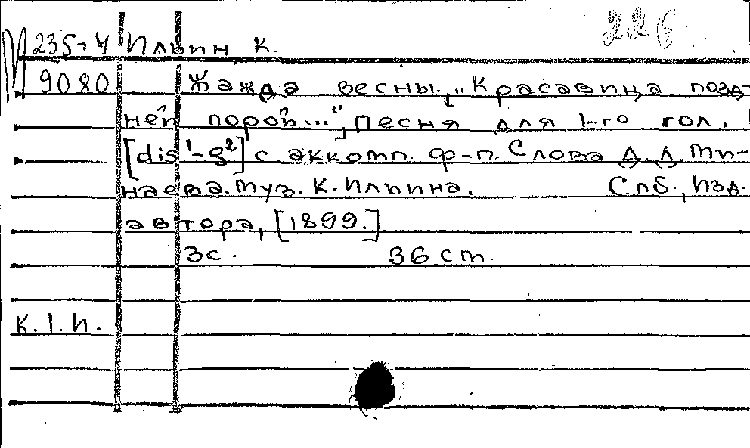 226
М 235-4 Ильин К.
9080 Жажда весны. „Красавица позд-
ней порой...", Песня для 1-го гол.
[dis¹-g²] с аккомп. ф-п. Слова Д. Д. Ми-
наева. Муз. К. Ильина. Спб., Изд.
автора, [1899.]
3с. 36 cm.
К. 1. п.